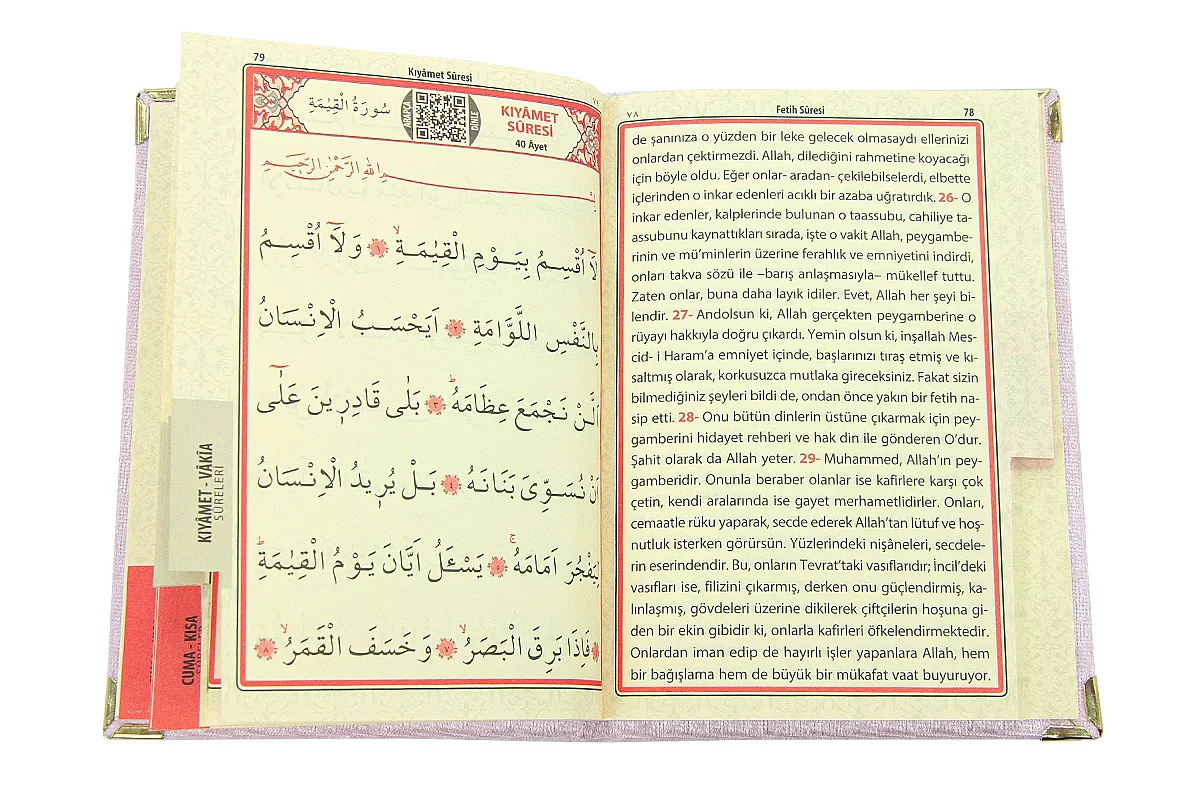 79
Kıyâmet Sûresi
سُورَةُ الْقِيٰمَةِ
ARAPÇA
DİNLE
KIYÂMET
SÛRESİ
40 Âyet
بِسْمِ اللّٰهِ الرَّحْمٰنِ الرَّحٖيمِ
لَٓا اُقْسِمُ بِيَوْمِ الْقِيٰمَةِۙ ﴿١﴾ وَلَٓا اُقْسِمُ
بِالنَّفْسِ اللَّوَّامَةِ ﴿٢﴾ اَيَحْسَبُ الْاِنْسَانُ
اَلَّنْ نَجْمَعَ عِظَامَهُۜ ﴿٣﴾ بَلٰى قَادِرٖينَ عَلٰٓى
اَنْ نُسَوِّىَ بَنَانَهُ ﴿٤﴾ بَلْ يُرٖيدُ الْاِنْسَانُ
لِيَفْجُرَ اَمَامَهُۚ ﴿٥﴾ يَسْـَٔلُ اَيَّانَ يَوْمُ الْقِيٰمَةِۜ
﴿٦﴾ فَاِذَا بَرِقَ الْبَصَرُۙ ﴿٧﴾ وَخَسَفَ الْقَمَرُۙ ﴿٨﴾
KIYÂMET - VÂKİA
SÛRELERİ
CUMA - KISA
٧٨
Fetih Sûresi
78
de şanınıza o yüzden bir leke gelecek olmasaydı ellerinizi
onlardan çektirmezdi. Allah, dilediğini rahmetine koyacağı
için böyle oldu. Eğer onlar- aradan- çekilebilselerdi, elbette
içlerinden o inkar edenleri acıklı bir azaba uğratırdık. 26- O
inkar edenler, kalplerinde bulunan o taassubu, cahiliye ta-
assubunu kaynattıkları sırada, işte o vakit Allah, peygambe-
rinin ve mü’minlerin üzerine ferahlık ve emniyetini indirdi,
onları takva sözü ile –barış anlaşmasıyla– mükellef tuttu.
Zaten onlar, buna daha layık idiler. Evet, Allah her şeyi bi-
lendir. 27- Andolsun ki, Allah gerçekten peygamberine o
rüyayı hakkıyla doğru çıkardı. Yemin olsun ki, inşallah Mes-
cid- i Haram’a emniyet içinde, başlarınızı tıraş etmiş ve kı-
saltmış olarak, korkusuzca mutlaka gireceksiniz. Fakat sizin
bilmediğiniz şeyleri bildi de, ondan önce yakın bir fetih na-
sip etti. 28- Onu bütün dinlerin üstüne çıkarmak için pey-
gamberini hidayet rehberi ve hak din ile gönderen O’dur.
Şahit olarak da Allah yeter. 29- Muhammed, Allah’ın pey-
gamberidir. Onunla beraber olanlar ise kafirlere karşı çok
çetin, kendi aralarında ise gayet merhametlidirler. Onları,
cemaatle rüku yaparak, secde ederek Allah’tan lütuf ve hoş-
nutluk isterken görürsün. Yüzlerindeki nişâneleri, secdele-
rin eserindendir. Bu, onların Tevrat’taki vasıflarıdır; İncil’deki
vasıfları ise, filizini çıkarmış, derken onu güçlendirmiş, ka-
lınlaşmış, gövdeleri üzerine dikilerek çiftçilerin hoşuna gi-
den bir ekin gibidir ki, onlarla kafirleri öfkelendirmektedir.
Onlardan iman edip de hayırlı işler yapanlara Allah, hem
bir bağışlama hem de büyük bir mükafat vaat buyuruyor.